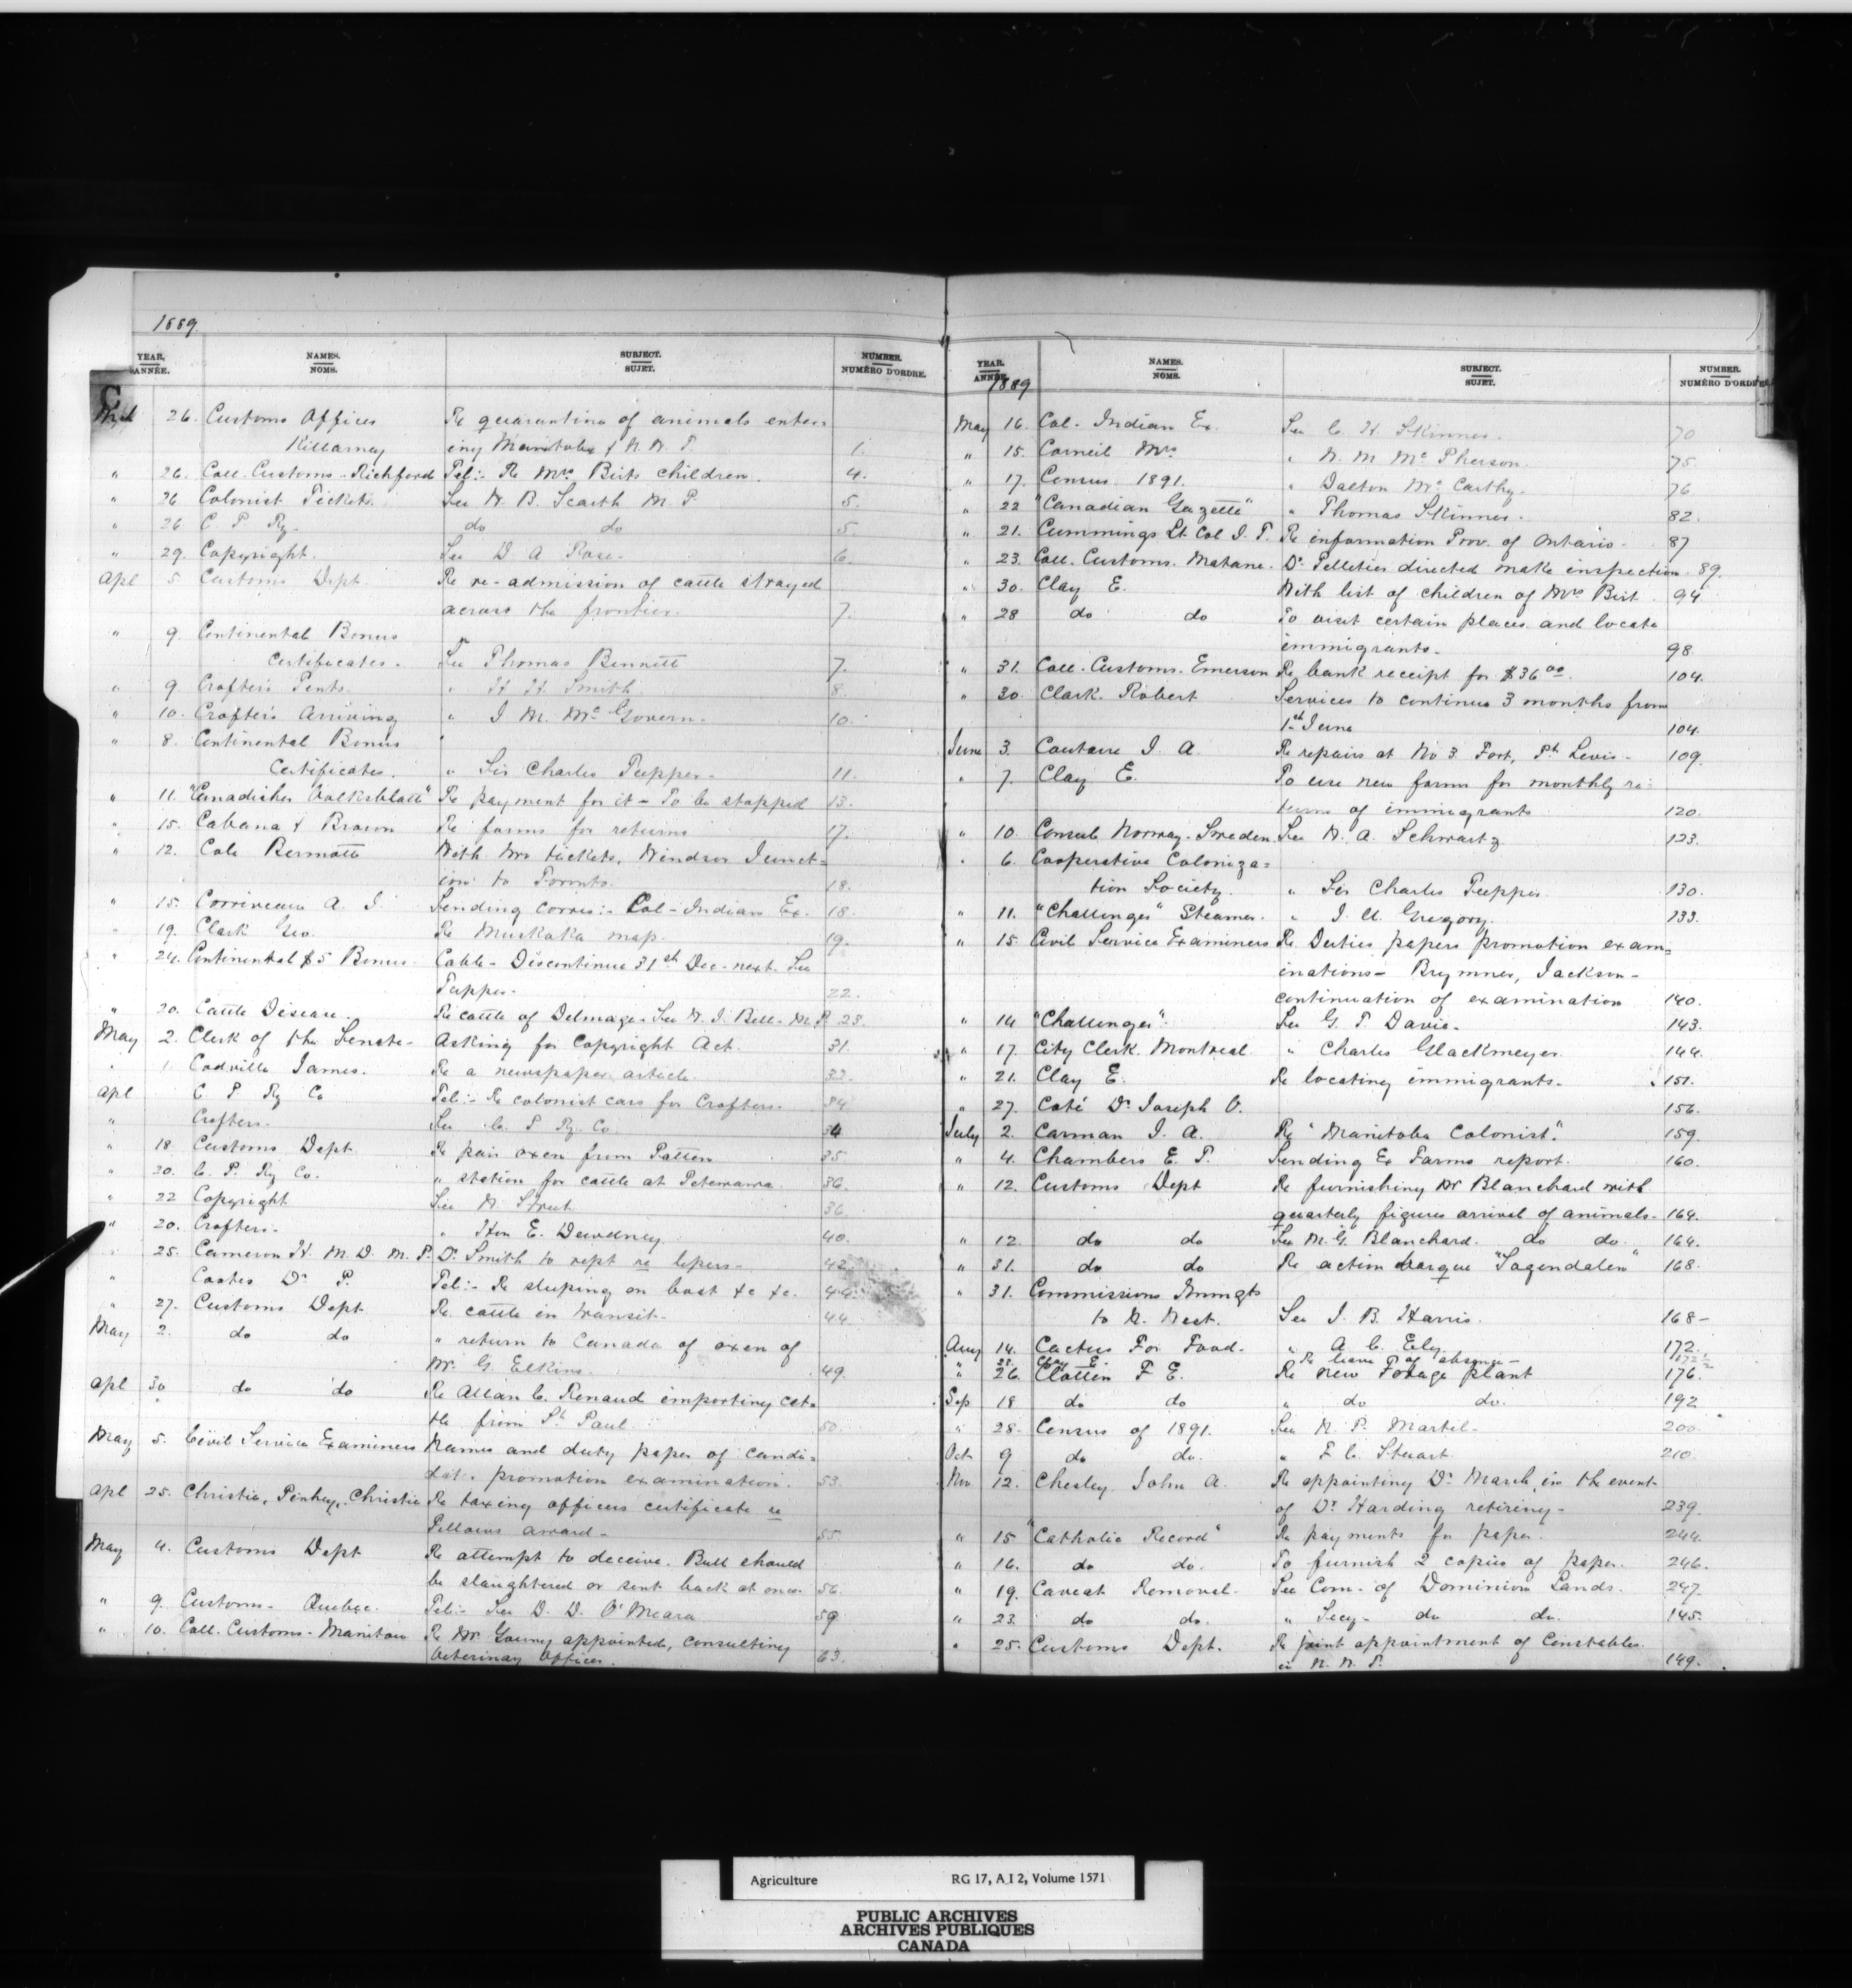 1889.
YEAR. ANNÉE. NAMES. NOMS. SUBJECT. SUJET. NUMBER. NUMÉRO D'ORDRE.
C
Mch 26. Customs Officer Re quarantine of animals enter-
Killarney ing Manitoba & N. W. T. 1.
" 26. Coll. Customs - Richford Tel:- Re Mrs Birts children. 4.
" 26 Colonist Tickets. See W. B. Scarth M. P. 5.
" 26 C. P. Ry. do do 5.
" 29. Copyright. See D A Rose. 6.
Apl 5. Customs Dept. Re re-admission of cattle strayed
across the frontier. 7.
" 9. Continental Bonus
Certificates. See Thomas Bennett 7.
" 9 Crofters Tents. " H. H. Smith. 8.
" 10. Crofters Arriving " J. M. McGovern. 10.
" 8. Continental Bonus
Certificates. " Sir Charles Tupper. 11.
" 11. "Canadisches Volksblatt" Re payment for it - To be stopped 13.
" 15. Cabana & Brown Re forms for returns 17.
" 12. Cole Bermotte With two tickets, Windsor Junct-
ion to Toronto. 18.
" 15. Corriveau A. J. Sending corres:- Col-Indian Ex. 18.
" 19. Clark Geo. Re Muskoka map. 19.
" 24. Continental $5 Bonus Cable - Discontinue 31st Dec. next. See
Tupper. 22.
" 20. Cattle Disease. Re cattle of Delmage. See W. J. Bell - M.P. 23.
May 2. Clerk of the Senate - Asking for Copyright Act. 31.
" 1. Codville James. Re a newspaper article. 32.
Apl C P Ry Co Tel:- Re colonist cars for Crofters. 34
" Crofters. See C. P. Ry. Co. 34
" 18 Customs Dept. Re pair oxen from Patten 35
" 30. C. P. Ry Co. " station for cattle at Petewawa. 36.
" 22 Copyright See W. Street. 36.
" 20. Crofters. " Hon E. Dewdney. 40.
" 25. Cameron H. M. D. M. P. Dr Smith to rept re lepers. 42
" Coates Dr P. Tel:- Re sleeping on boat &c &c. 44.
" 27. Customs Dept Re cattle in transit. 44
May 2. do do " return to Canada of oxen of
Mr. G. Elkins. 49.
Apl 30 do do Re Allan C. Renaud importing cat-
tle from St Paul. 50.
May 5. Civil Service Examiners Names and duty paper of candi-
date. promotion examination. 53.
Apl 25. Christie, Pinhey, Christie Re taxing officers certificate re
Fellows award. 55
May 4. Customs Dept Re attempt to deceive. Bull should
be slaughtered or sent back at once. 56.
" 9. Customs - Quebec. Tel:- See D. D. O'Meara 59
" 10. Coll. Customs - Manitou Re Mr Young appointed, consulting
Veterinary Officer. 63.
YEAR. ANNÉE. NAMES. NOMS. SUBJECT. SUJET. NUMBER. NUMÉRO D'ORDRE
1889
May 16. Col. Indian Ex. See C. H. Skinner. 70
" 15. Corneil Mrs " W. M. McPherson. 75.
" 17. Census 1891. " Dalton McCarthy. 76
" 22 "Canadian Gazette" " Thomas Skinner. 82.
" 21. Cummings Lt Col J. T. Re information Prov. of Ontario. 87
" 23. Coll. Customs. Matane. Dr Pelletier directed make inspection. 89.
" 30. Clay E. With list of children of Mrs Birt. 94
" 28 do do To visit certain places and locate
immigrants. 98
" 31. Coll. Customs. Emerson Re bank receipt for $36 00. 104.
" 30. Clark. Robert Services to continue 3 months from
1st June 104.
June 3. Couture J. A. Re repairs at No 3 Fort, Pt Levis. 109.
" 7. Clay E. To use new forms for monthly re-
turns of immigrants 120.
" 10. Consul Norway-Sweden See W. A. Schwartz 123.
" 6. Cooperative Coloniza-
tion Society. " Sir Charles Tupper. 130.
" 11. "Challenger" Steamer. " J. U. Gregory. 133.
" 15. Civil Service Examiners Re Duties papers promotion exam-
inations - Brymner, Jackson -
continuation of examination 140.
" 14 "Challenger". See G. T. Davie. 143.
" 17. City Clerk. Montreal " Charles Glackmeyer. 144.
" 21. Clay E. Re locating immigrants. 151.
" 27. Coté Dr Joseph O. 156.
July 2. Carman J. A. Re "Manitoba Colonist". 159.
" 4. Chambers E. T. Sending Ex Farms report. 160.
" 12. Customs Dept Re furnishing Mr Blanchard with
quarterly figures arrival of animals. 164.
" 12. do do See M. G. Blanchard. do do. 164.
" 31. do do Re action barque "Sagendalen" 168.
" 31. Commissions Immgts
to N. West. See J. B. Harris. 168-
Aug 14. Cactus For Food. " A. C. Ely. 172.
" 23. Clay E. Re leave of absence - 172½
" 26. Clotten F E. Re new Forage plant 176.
Sep 18 do do " do do. 192
" 28. Census of 1891. See N. P. Martel. 200.
Oct 9 do do. " F C. Stuart. 210.
Nov 12. Chesley John A. Re appointing Dr March in the event
of Dr Harding retiring. 239.
" 15 "Catholic Record" Re payments for paper. 244.
" 16. do do. To furnish 2 copies of paper. 246.
" 19. Caveat Removal. See Com. of Dominion Lands. 247.
" 23. do do. " Secy - do do. 145.
" 25. Customs Dept. Re joint appointment of Constables
in N. W. T. 149.
Agriculture RG 17, A I 2, Volume 1571
PUBLIC ARCHIVES
ARCHIVES PUBLIQUES
CANADA